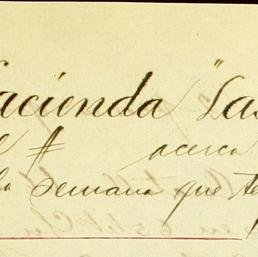 acienda "Las
# acerca
la semana que te